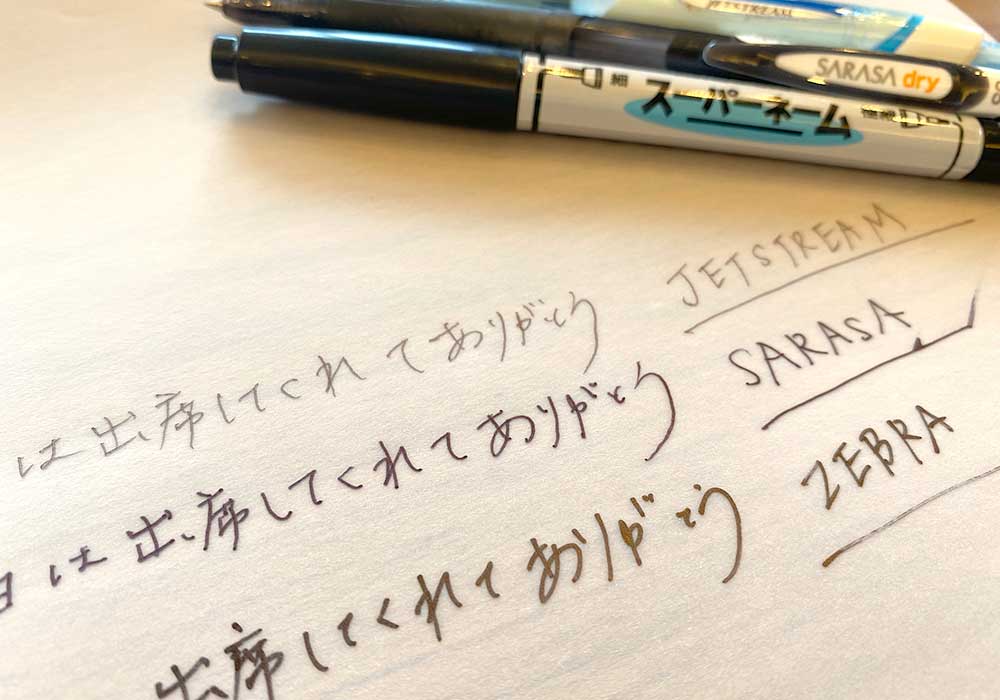 JETSTREAM
SARASA dry
細 スーパーネーム 極細
は出席してくれてありがとう JETSTREAM
日は出席してくれてありがとう SARASA
出席してくれてありがとう ZEBRA